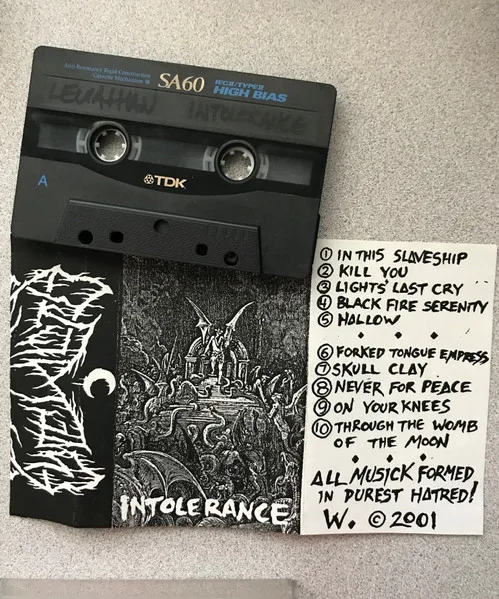 Anti-Resonance Rigid Construction
Cassette Mechanism
SA60 IECII/TYPEII
HIGH BIAS
LEVIATHAN INTOLERANCE
A
TDK
LEVIATHAN
INTOLERANCE
① IN THIS SLAVESHIP
② KILL YOU
③ LIGHTS' LAST CRY
④ BLACK FIRE SERENITY
⑤ HALLOW
⑥ FORKED TONGUE EMPRESS
⑦ SKULL CLAY
⑧ NEVER FOR PEACE
⑨ ON YOUR KNEES
⑩ THROUGH THE WOMB
OF THE MOON
ALL MUSICK FORMED
IN PUREST HATRED!
W. © 2001